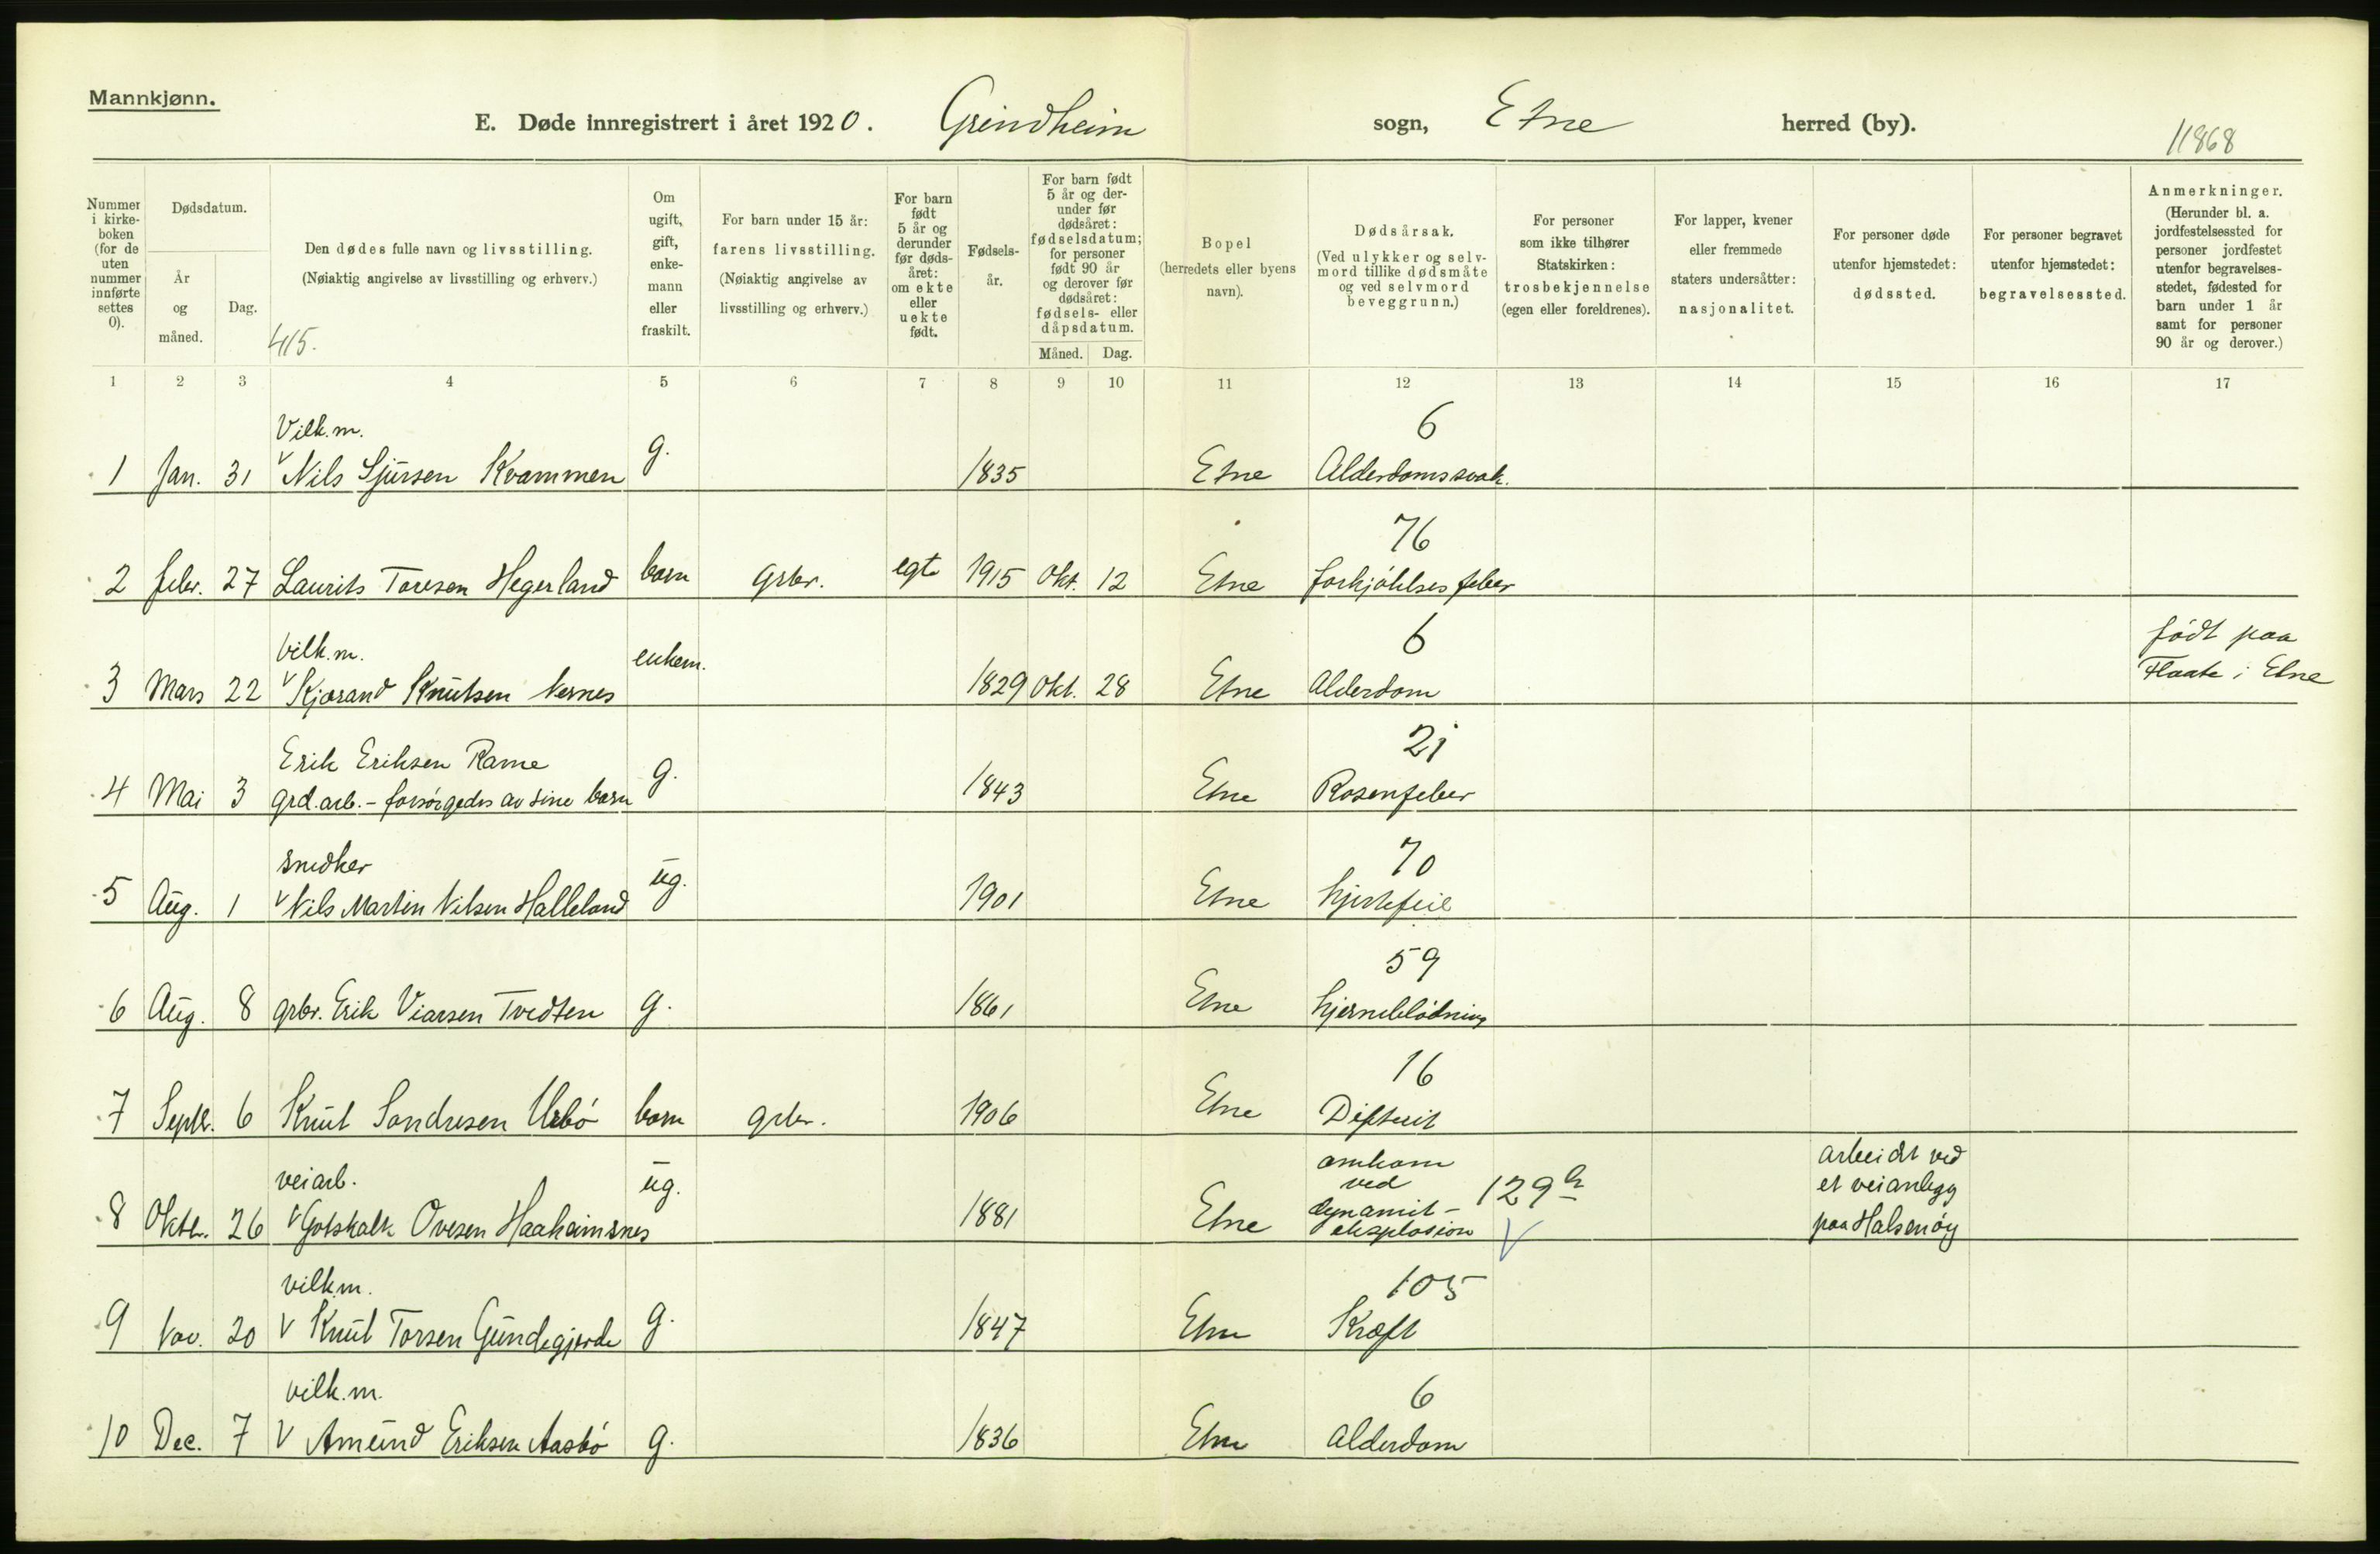 Mannkjønn.
E. Døde innregistrert i året 1920. Grindheim sogn, Etne herred (by).
11868
Nummer i kirke- boken (for de uten nummer innførte settes 0).
Dødsdatum.
År og måned.
Dag.
Den dødes fulle navn og livsstilling.
(Nøiaktig angivelse av livsstilling og erhverv.)
415.
Om ugift, gift, enke- mann eller fraskilt.
For barn under 15 år: farens livsstilling. (Nøiaktig angivelse av livsstilling og erhverv.)
For barn født 5 år og derunder før døds- året: om ekte eller uekte født.
Fødsels- år.
For barn født 5 år og der- under før dødsåret: fødselsdatum; for personer født 90 år og derover før dødsåret: fødsels- eller dåpsdatum.
Måned. Dag.
Bopel (herredets eller byens navn).
Dødsårsak. (Ved ulykker og selv- mord tillike dødsmåte og ved selvmord beveggrunn.)
For personer som ikke tilhører Statskirken: trosbekjennelse (egen eller foreldrenes).
For lapper, kvener eller fremmede staters undersåtter: nasjonalitet.
For personer døde utenfor hjemstedet: dødssted.
For personer begravet utenfor hjemstedet: begravelsessted.
Anmerkninger. (Herunder bl. a. jordfestelsessted for personer jordfestet utenfor begravelses- stedet, fødested for barn under 1 år samt for personer 90 år og derover.)
1 2 3 4 5 6 7 8 9 10 11 12 13 14 15 16 17
Vilk.m. 6
1 Jan. 31 Nils Sjursen Kvammen g. 1835 Etne Alderdomssvak.
76
2 febr. 27 Laurits Toresen Hegerland barn grbr. egte 1915 Okt. 12 Etne forkjølelsesfeber
Vilk.m. enkem. 6 født paa
3 Mars 22 Kjærand Knutsen Vernes 1829 Okt. 28 Etne Alderdom Flaate i Etne
Erik Eriksen Rame 21
4 Mai 3 grd.arb. - forsørgedes av sine barn g. 1843 Etne Rosenfeber
snedker 70
5 Aug. 1 Nils Martin Nilsen Halleland ug. 1901 Etne hjertefeil
59
6 Aug. 8 grbr. Erik Viarsen Tvedten g. 1861 Etne hjerneblødning
16
7 Septb. 6 Knut Sandresen Urbø barn grbr. 1906 Etne Difterit
veiarb. ug. omkom ved 129 arbeidt ved et veianlegg
8 Oktb. 26 Gotskalk Ovesen Haaheimsnes 1881 Etne dynamit- eksplosion V paa Halsnøy
vilk.m. 105
9 Nov. 20 V Knut Torsen Gundegjerde g. 1847 Etne Kræft
vilk.m. 6
10 Dec. 7 V Amund Eriksen Aasbø g. 1836 Etne Alderdom